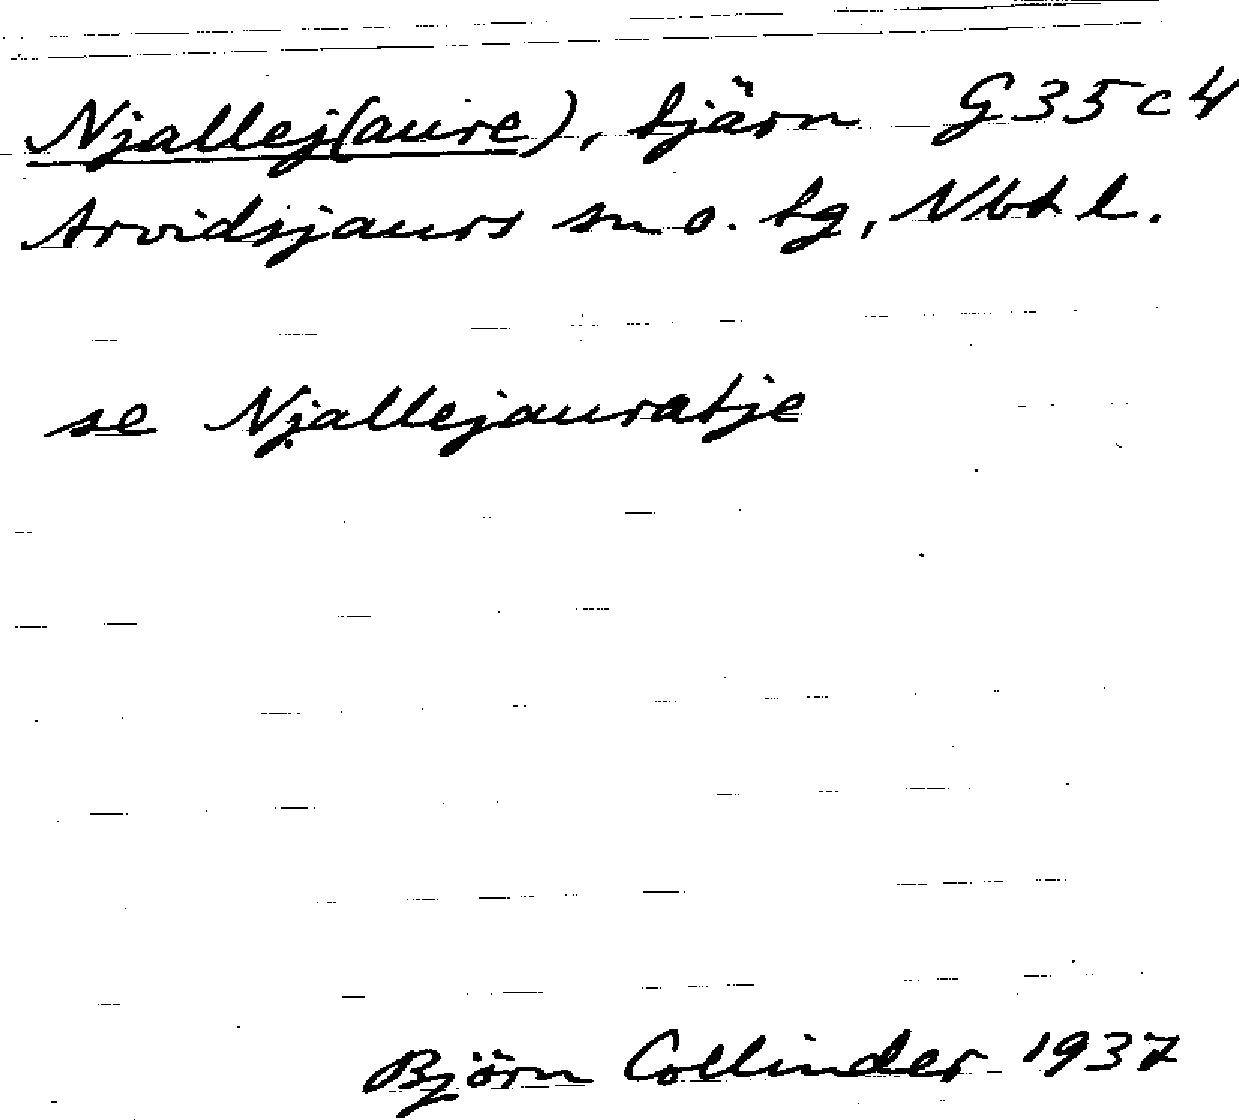 Njallej(aure), tjärn G35c4
Arvidsjaurs sn o. tg, Nbt l.
se Njallejauratje
Björn Collinder 1937